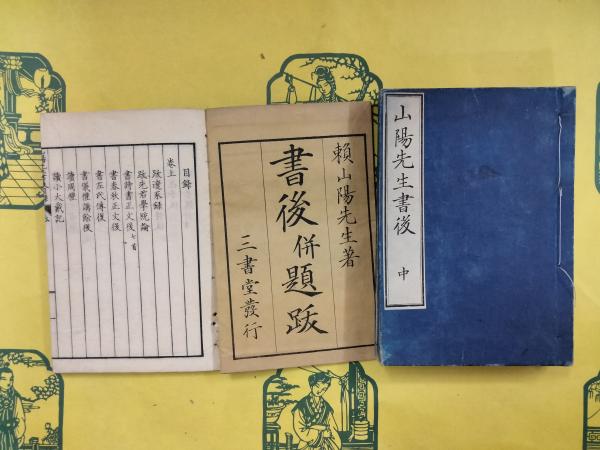 山陽先生書後
中
賴山陽先生著
書後併題跋
三書堂發行
目錄
卷上
跋系録
跋先君學統論
書詩書正文後七首
書春秋正文後
書左氏傳後
書儀講餘後
讀周禮
讀小大戴記